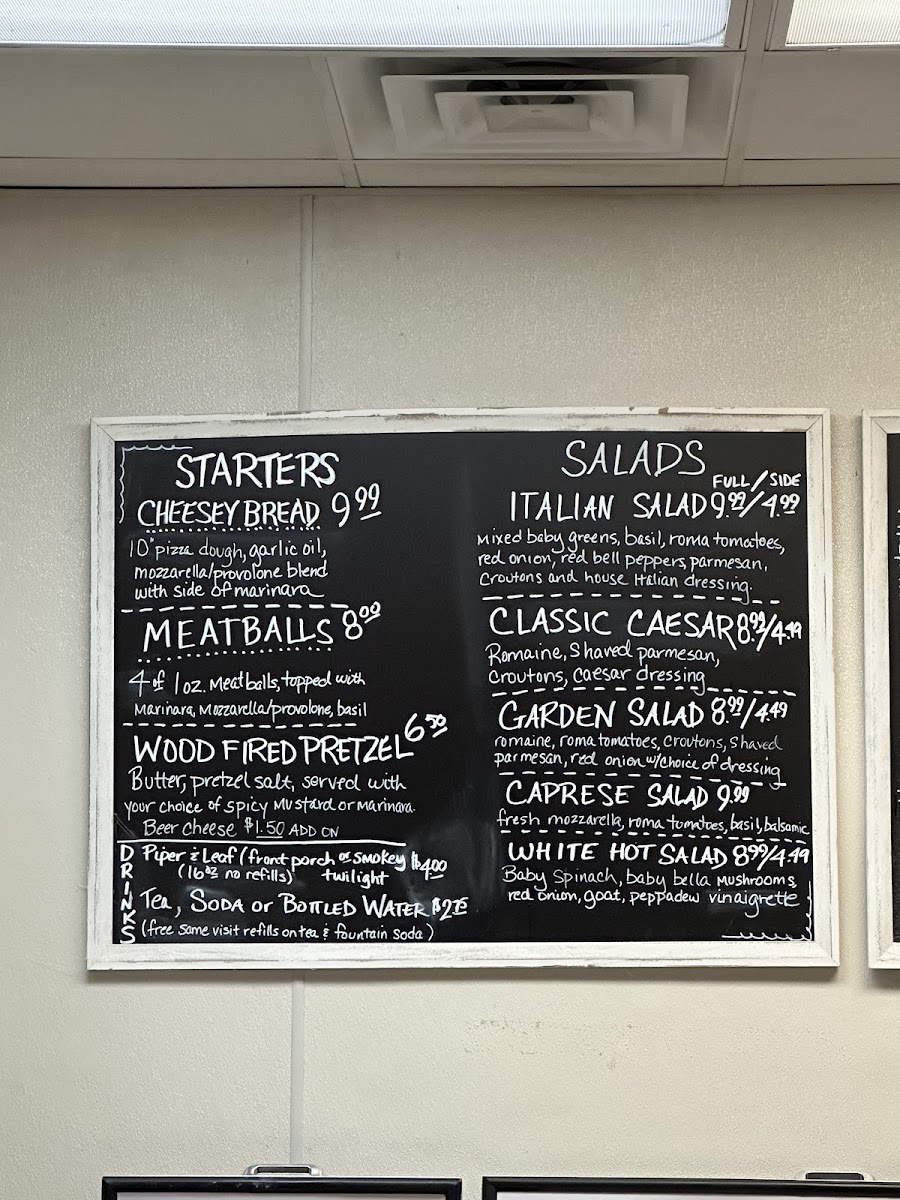 STARTERS
CHEESEY BREAD 9.99
10" pizza dough, garlic oil,
mozzarella/provolone blend
with side of marinara
MEATBALLS 8.00
4 of 1 oz. Meatballs, topped with
Marinara, Mozzarella/provolone, basil
WOOD FIRED PRETZEL 6.50
Butter, pretzel salt, served with
your choice of spicy Mustard or marinara.
Beer cheese $1.50 ADD ON
DRINKS
Piper & Leaf (front porch or smokey twilight $4.00
(16oz no refills)
Tea, SODA or BOTTLED WATER $2.75
(free same visit refills on tea & fountain soda)
SALADS
FULL/SIDE
ITALIAN SALAD 9.99/4.99
Mixed baby greens, basil, roma tomatoes,
red onion, red bell peppers, parmesan,
Croutons and house Italian dressing.
CLASSIC CAESAR 8.99/4.49
Romaine, Shaved parmesan,
Croutons, caesar dressing
GARDEN SALAD 8.99/4.49
romaine, roma tomatoes, croutons, shaved
parmesan, red onion w/choice of dressing
CAPRESE SALAD 9.99
fresh mozzarella, roma tomatoes, basil, balsamic
WHITE HOT SALAD 8.99/4.49
Baby Spinach, baby bella Mushrooms,
red onion, goat, peppadew vinaigrette